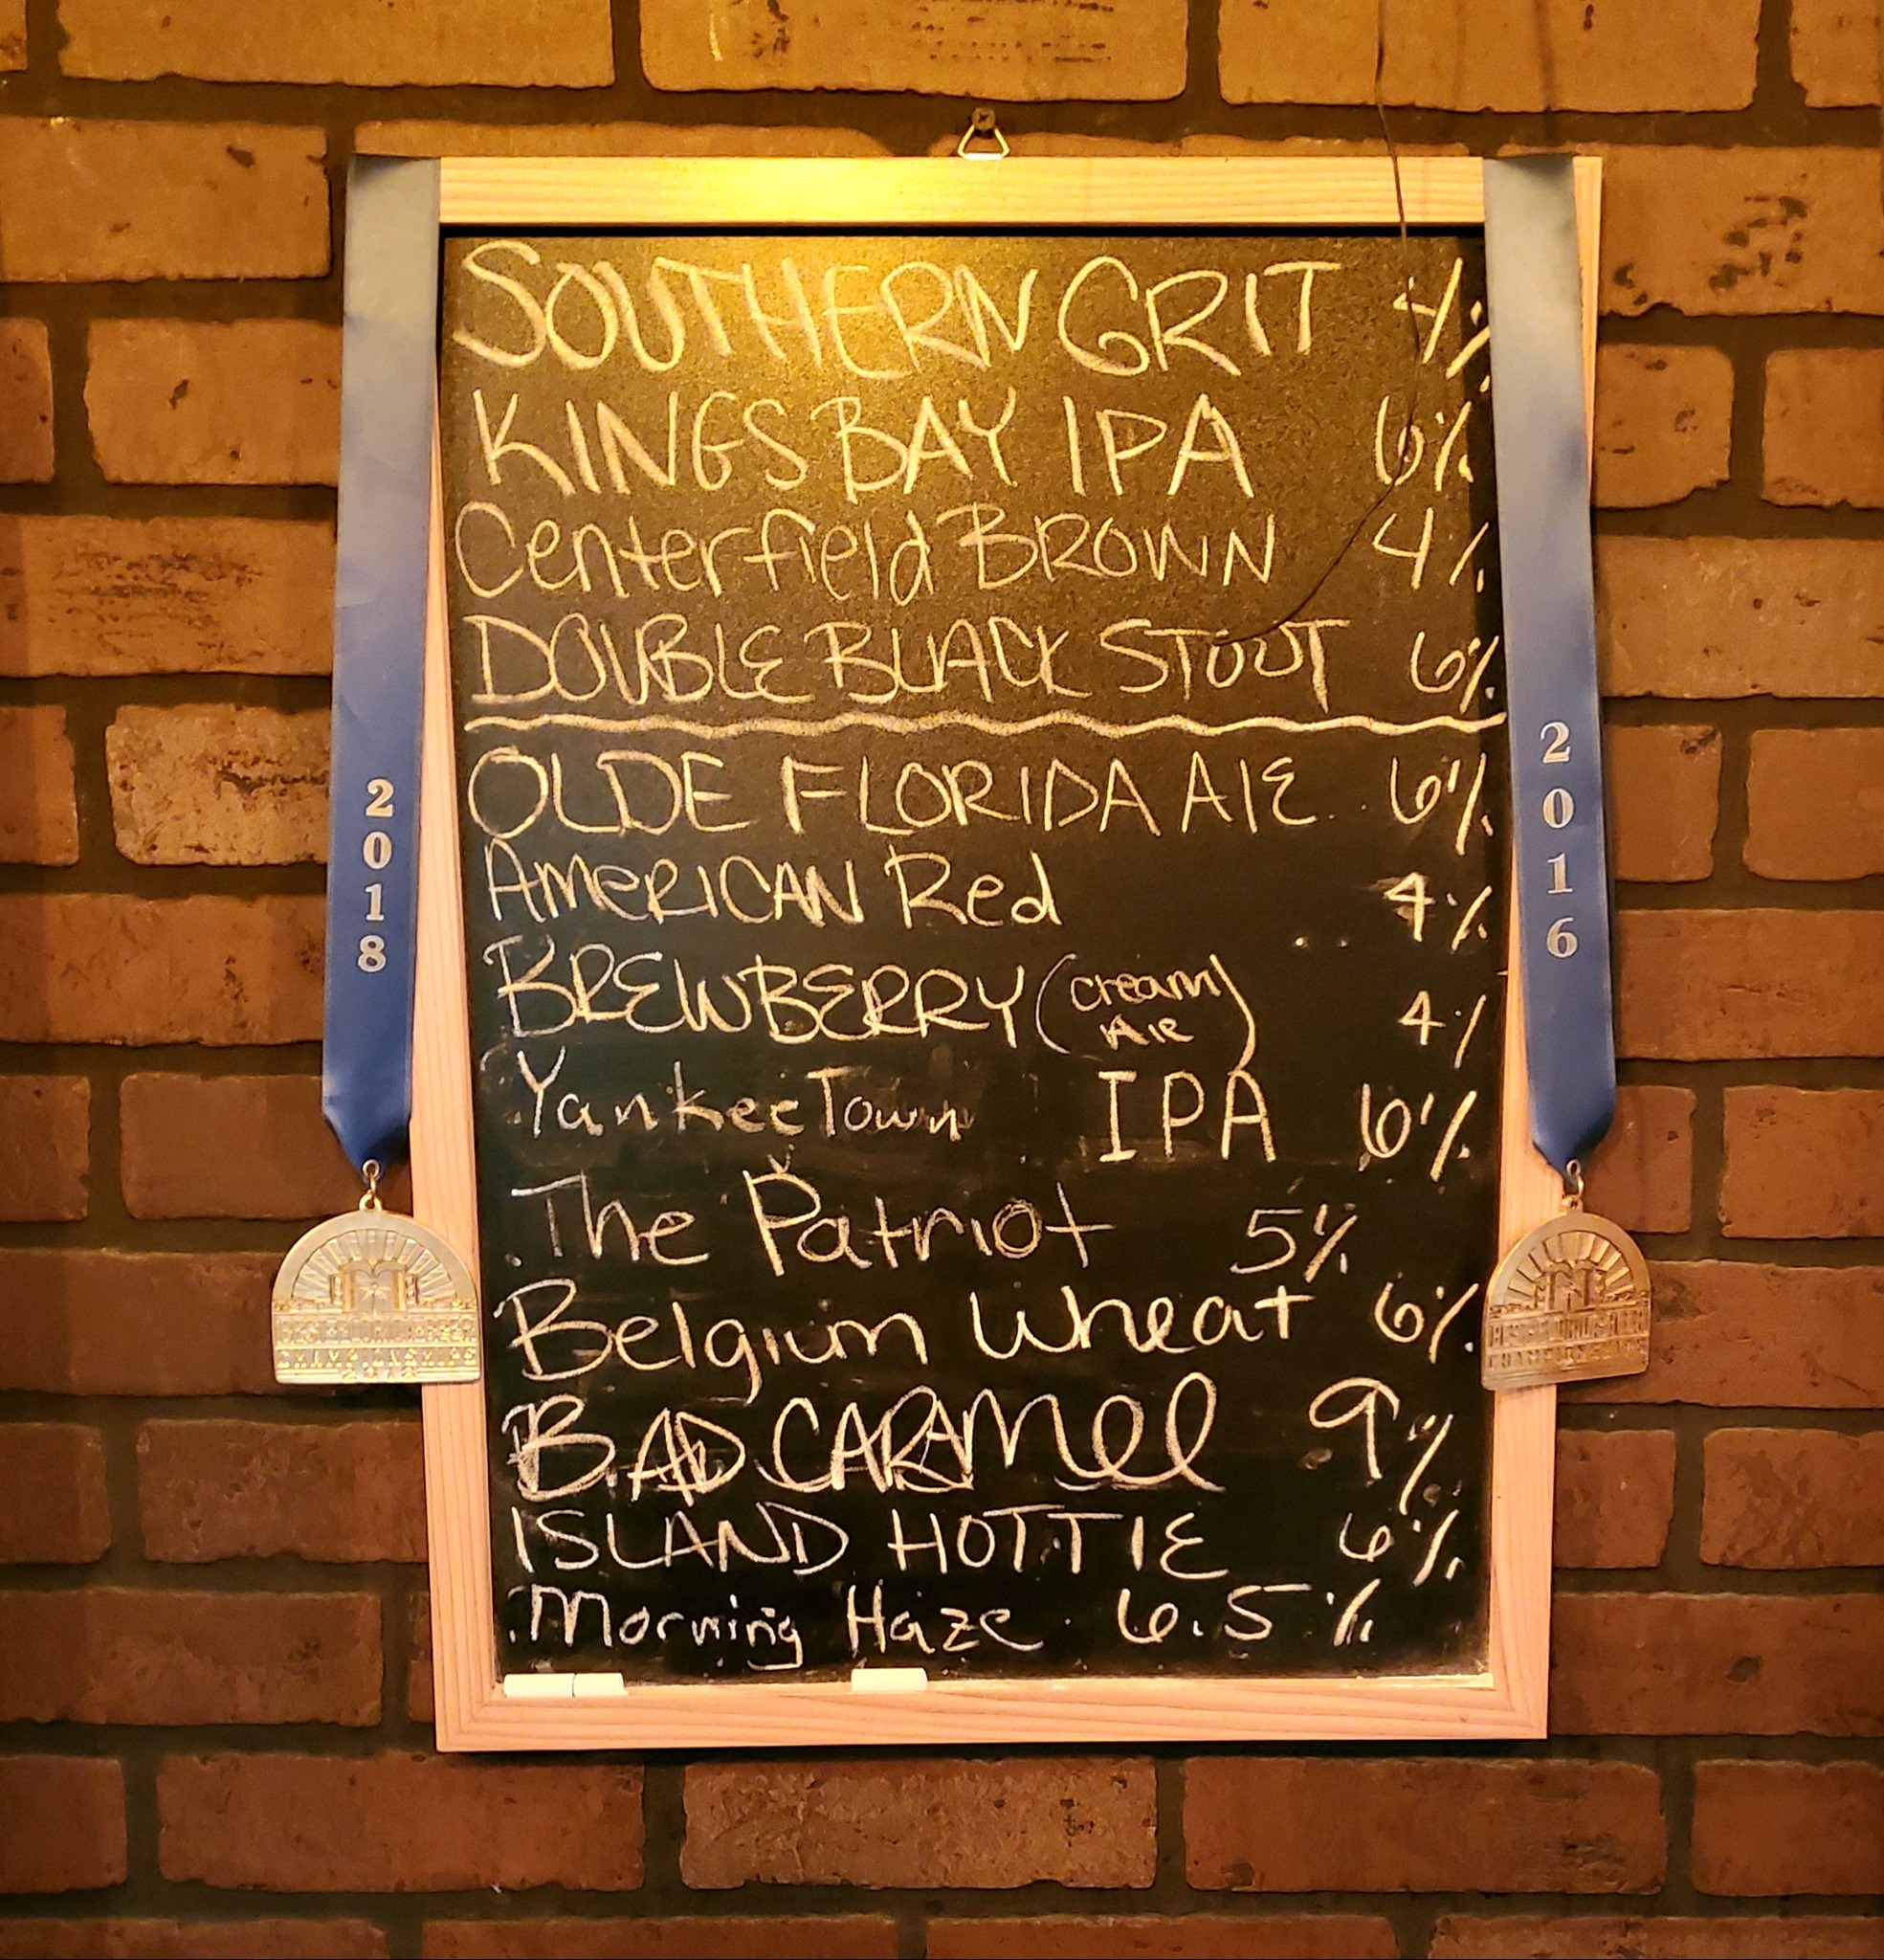 SOUTHERN GRIT 4%
KINGS BAY IPA 6%
Centerfield BROWN 4%
DOUBLE BLACK STOUT 6%
OLDE FLORIDA AlE 6%
AMeRICAN Red 4%
BREWBERRY (cream Ale) 4%
Yankee Town IPA 6%
The Patriot 5%
Belgium Wheat 6%
BAD CARAMel 9%
ISLAND HOTTIE 6%
Morning Haze 6.5%
2018
2016
BEST FLORIDA BEER
CHAMPIONSHIPS
BEST FLORIDA BEER
CHAMPIONSHIPS